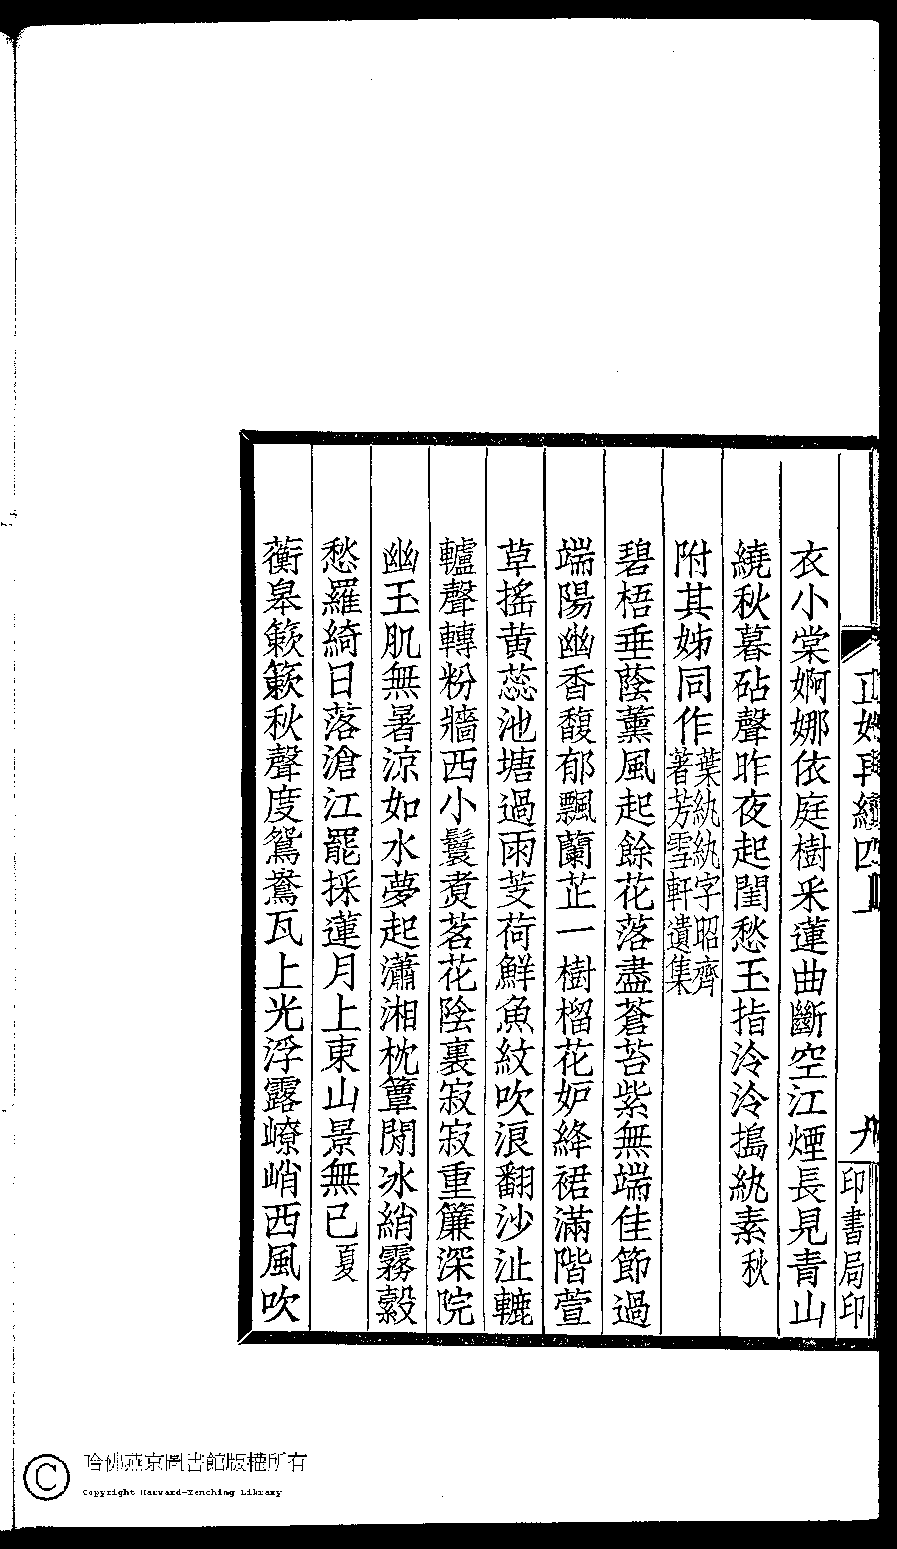 衣小棠婀娜依庭樹采蓮曲斷空江煙長見青山
繞秋暮砧聲昨夜起閨愁玉指泠泠搗紈素秋
附其姊同作葉紈紈字昭齊著芳雪軒遺集
碧梧垂蔭薰風起餘花落盡蒼苔紫無端佳節過
端陽幽香馥郁飄蘭芷一樹榴花妒絳裙滿階萱
草搖黃蕊池塘過雨芰荷鮮魚紋吹浪翻沙沚轆
轤聲轉粉牆西小鬟煑茗花陰裏寂寂重簾深院
幽玉肌無暑涼如水夢起瀟湘枕簟閒冰綃霧縠
愁羅綺日落滄江罷採蓮月上東山景無已夏
蘅皋簌簌秋聲度鴛鴦瓦上光浮露嶛峭西風吹
再續四
九
印書局印
哈佛燕京圖書館版權所有
Copyright Harvard-Yenching Library